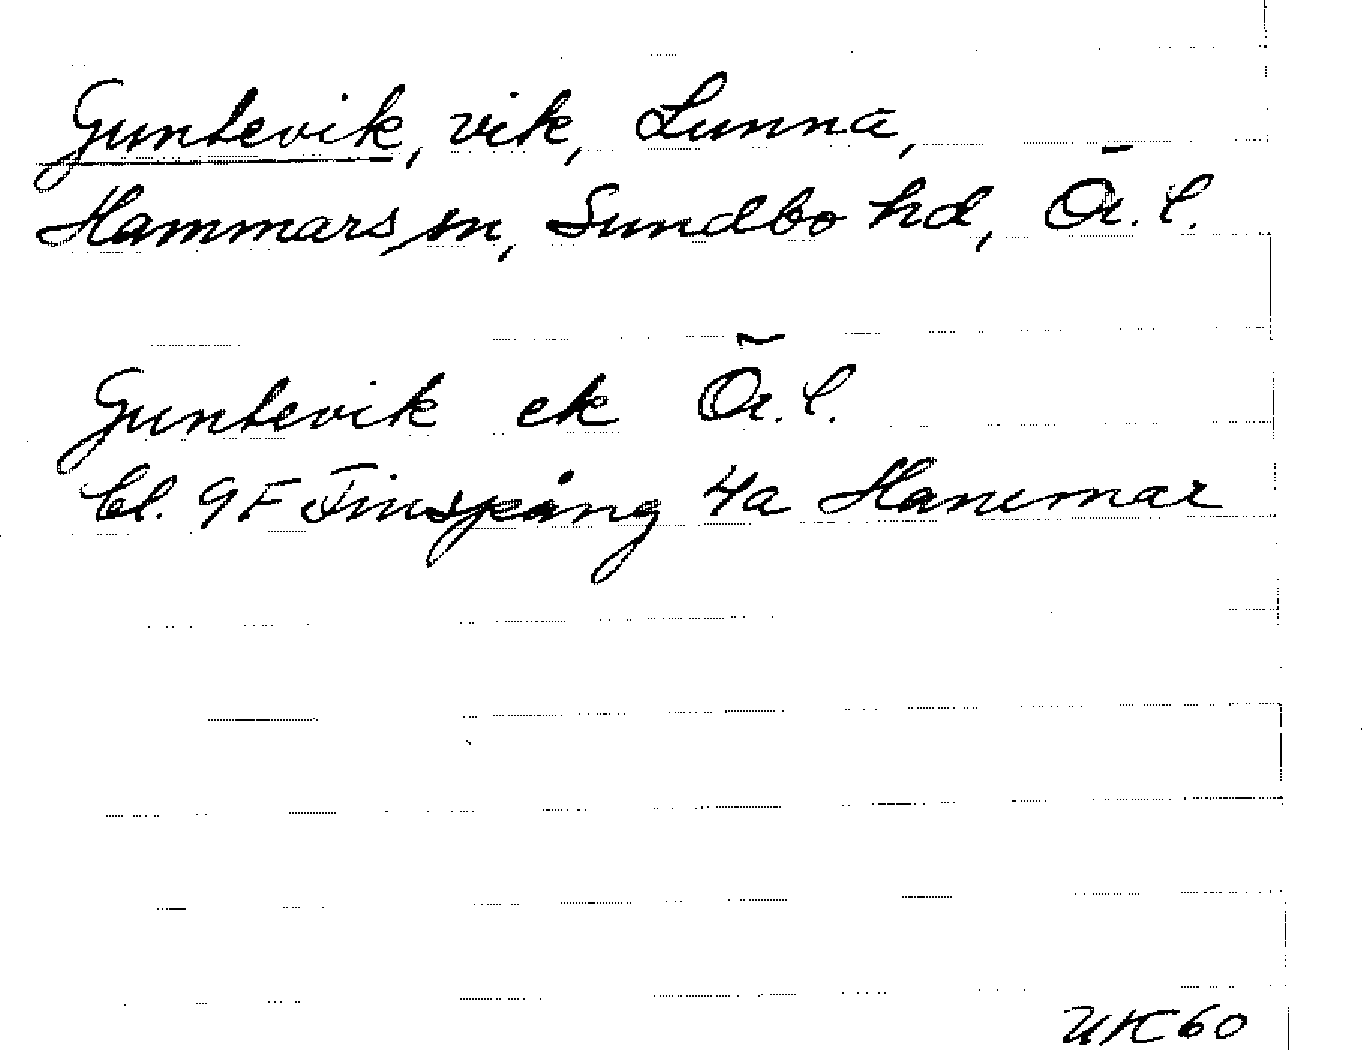 Guntevik, vik, Lunna,
Hammars sn, Sundbo hd, Ör. l.
Guntevik ek Ör. l.
bl. 9F Finspång 4a Hammar
UK60